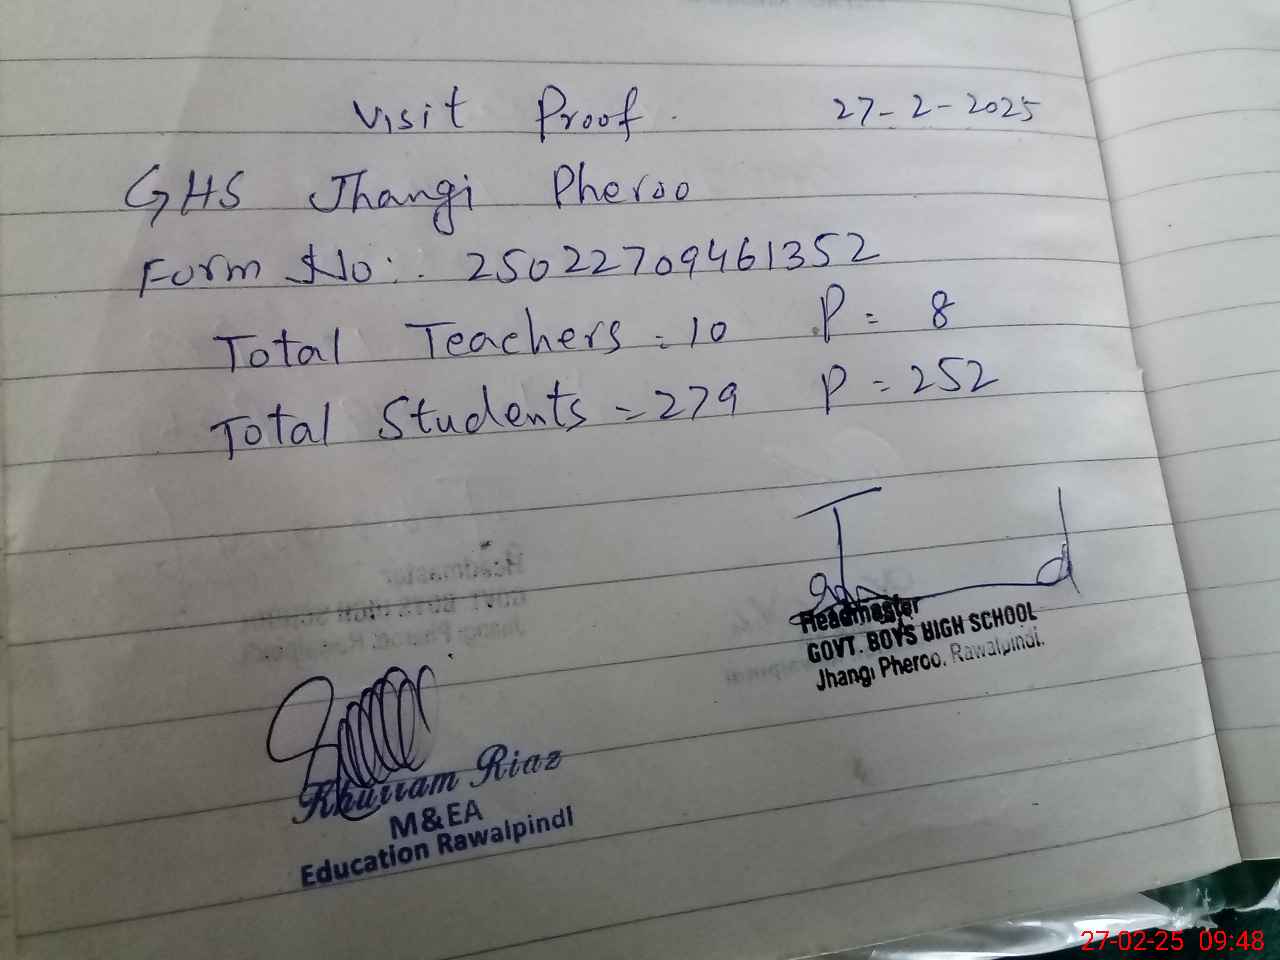 Visit Proof. 27-2-2025
GHS Jhangi Pheroo
Form No: 25022709461352
Total Teachers = 10 P = 8
Total Students = 279 P = 252
Headmaster
GOVT. BOYS HIGH SCHOOL
Jhangi Pheroo. Rawalpindi.
Khurram Riaz
M&EA
Education Rawalpindi
27-02-25 09:48